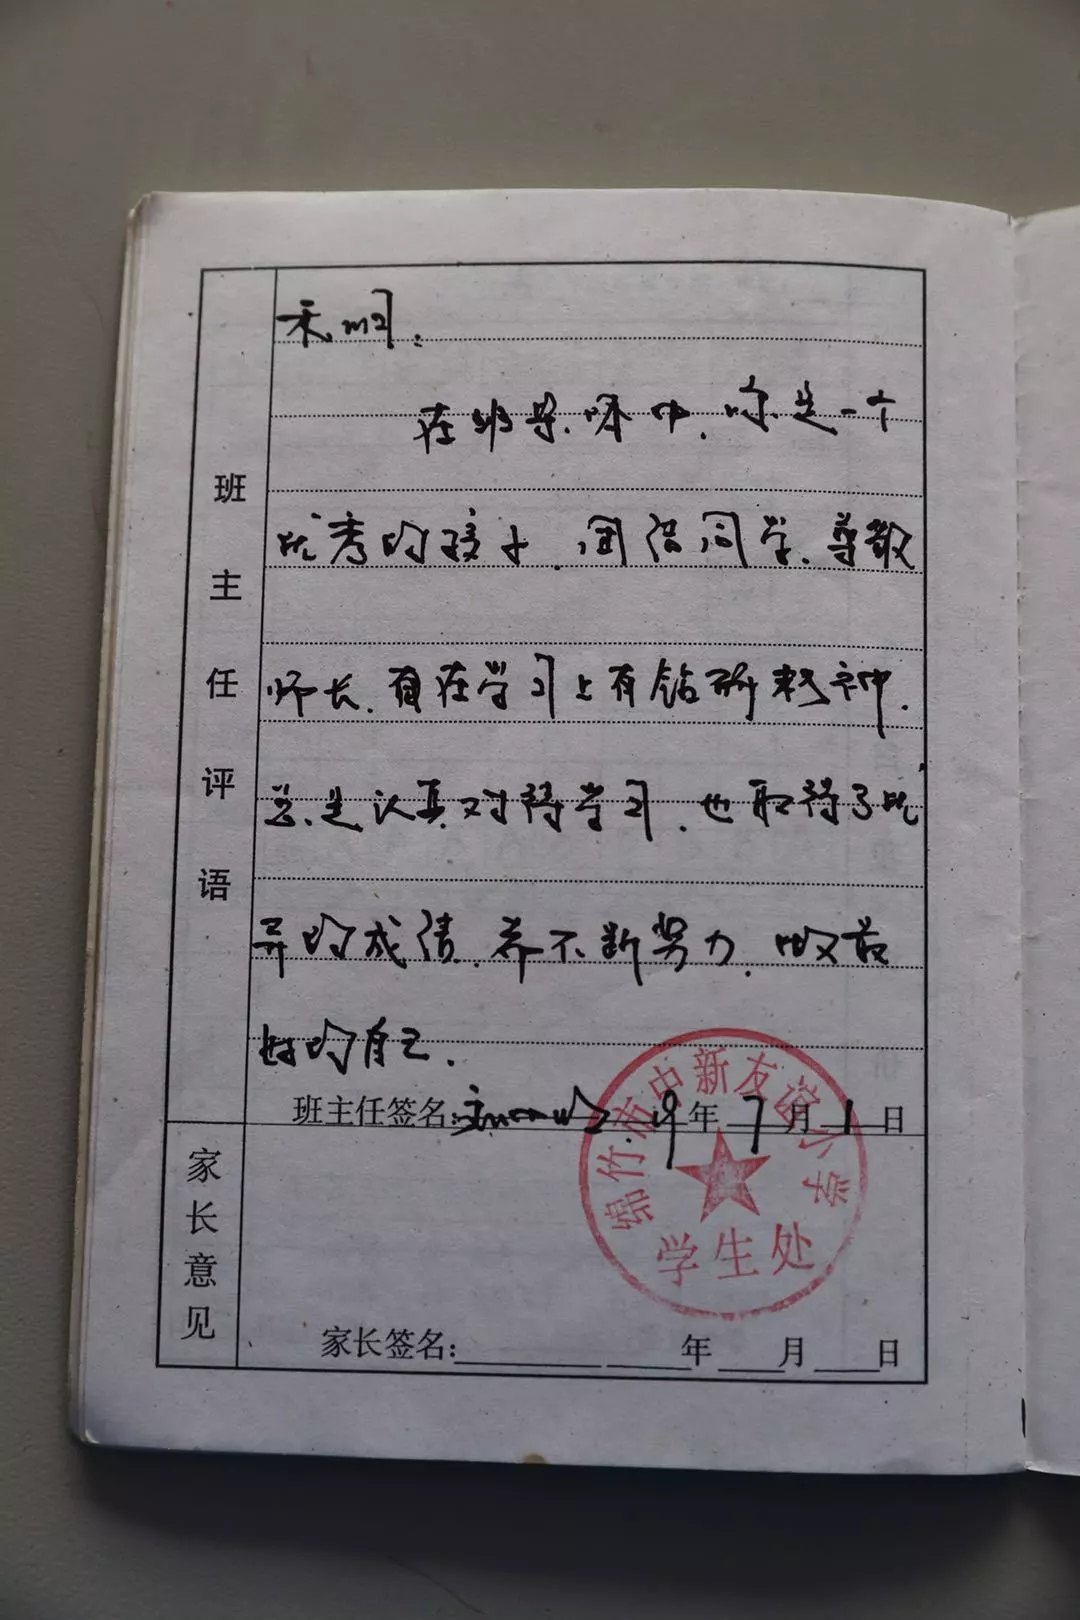 在班 中,你是一个
优秀的孩子,团结同学、尊敬
师长,在学习上有钻研精神,
总是认真对待学习,也取得了优
异的成绩,希不断努力,做最
好的自己.
班主任评语
班主任签名: 19年7月1日
绵竹市中新友谊小学
学生处
家长意见
家长签名:______ ____年____月____日